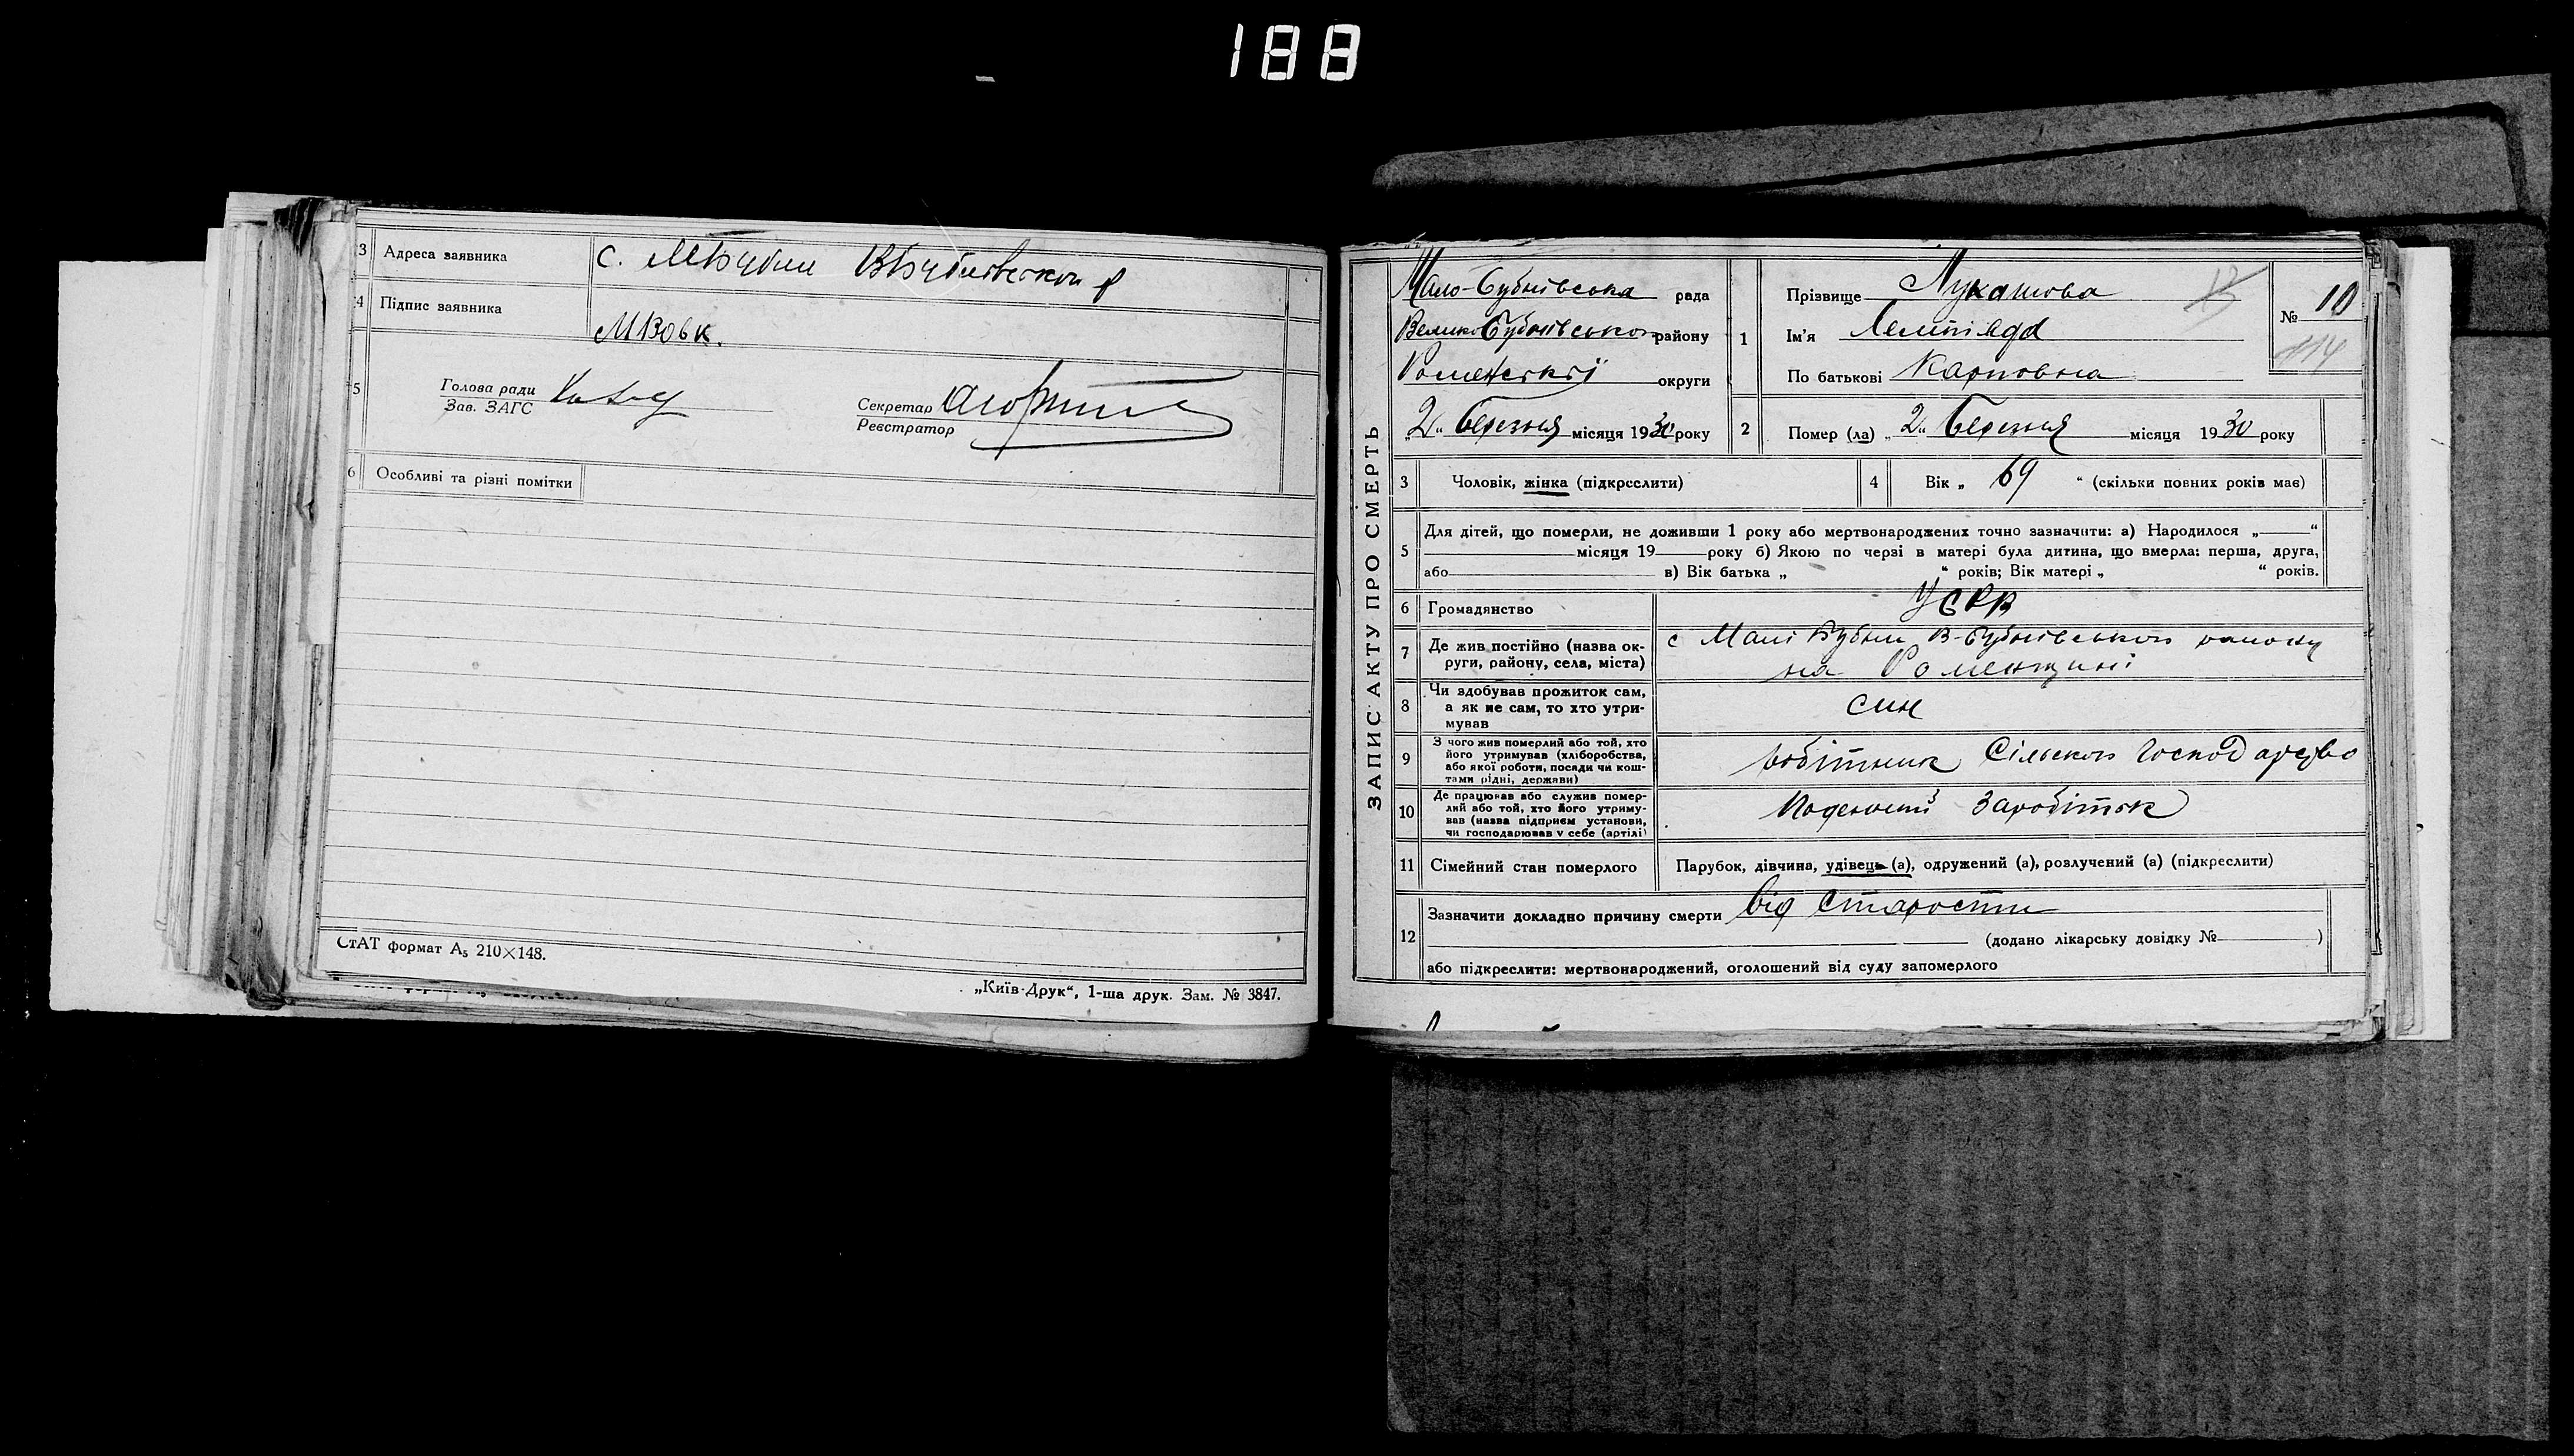 188
13 Адреса заявника с. МБубни ВБубнівськой р
14 Підпис заявника
МВовк.
15 Голова ради
Зав. ЗАГС
Секретар
Реєстратор
16 Особливі та різні помітки
СтАТ формат А₅ 210×148.
„Київ-Друк“, 1-ша друк. Зам. № 3847.
ЗАПИС АКТУ ПРО СМЕРТЬ
Мало-Бубнівська рада
Велико Бубнівського району
Роменської округи
„2„ березня місяця 1930 року
1 Прізвище Лукашова
Ім'я
По батькові Карповна
№ 10
13
114
2 Помер (ла) „2„ березня місяця 1930 року
3 Чоловік, жінка (підкреслити)
4 Вік „ 69 “ (скільки повних років має)
5 Для дітей, що померли, не доживши 1 року або мертвонароджених точно зазначити: а) Народилося „ “
місяця 19 року б) Якою по черзі в матері була дитина, що вмерла: перша, друга,
або в) Вік батька „ “ років; Вік матері „ “ років.
6 Громадянство УСРР
7 Де жив постійно (назва округи, району, села, міста) с Малі Бубни В-Бубнівського району
на Роменщині
8 Чи здобував прожиток сам,
а як не сам, то хто утри-
мував син
9 З чого жив померлий або той, хто
його утримував (хліборобства,
або якої роботи, посади чи кош-
тами рідні, держави) робітник Сільського Господарство
10 Де працював або служив помер-
лий або той, хто його утриму-
вав (назва підприєм установи,
чи господарював у себе (артілі) Поденний Заробіток
11 Сімейний стан померлого Парубок, дівчина, удівець (а), одружений (а), розлучений (а) (підкреслити)
12 Зазначити докладно причину смерти від старости
(додано лікарську довідку № )
або підкреслити: мертвонароджений, оголошений від суду запомерлого